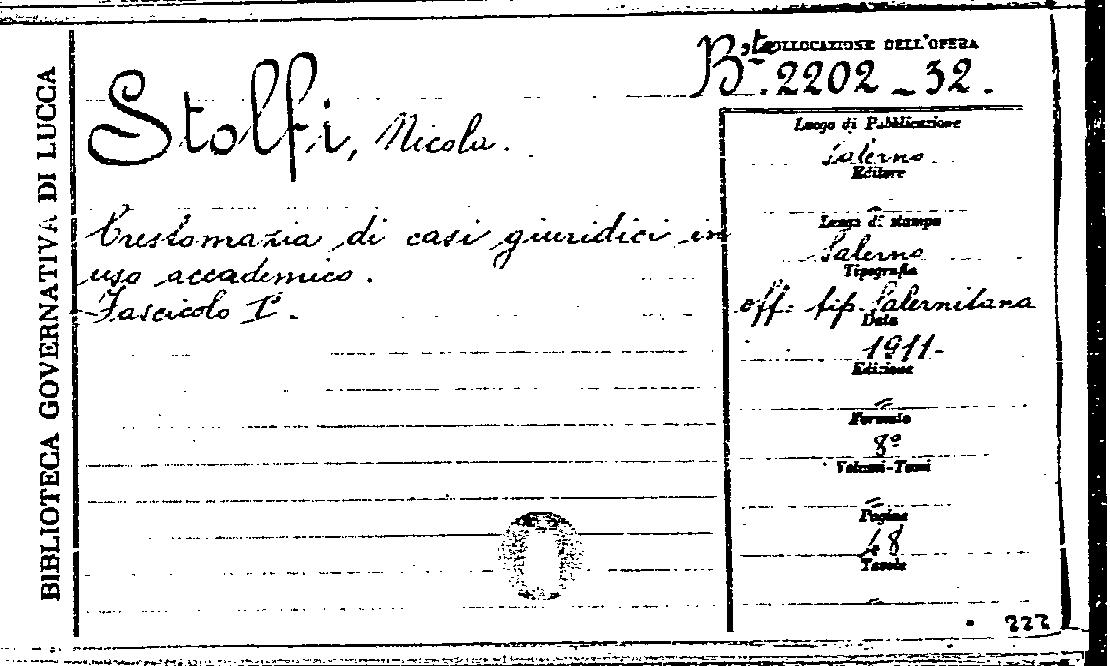 BIBLIOTECA GOVERNATIVA DI LUCCA
COLLOCAZIONE DELL'OPERA
B.ta 2202 - 32.
Stolfi, Nicola.
Crestomazia di casi giuridici in
uso accademico.
Fascicolo I°.
Luogo di Pubblicazione
Salerno
Editore
=
Luogo di stampa
Salerno
Tipografia
off. tip. Salernitana
Data
1911-
Edizione
=
Formato
8°
Volumi-Tomi
=
Pagine
48
Tavole
222